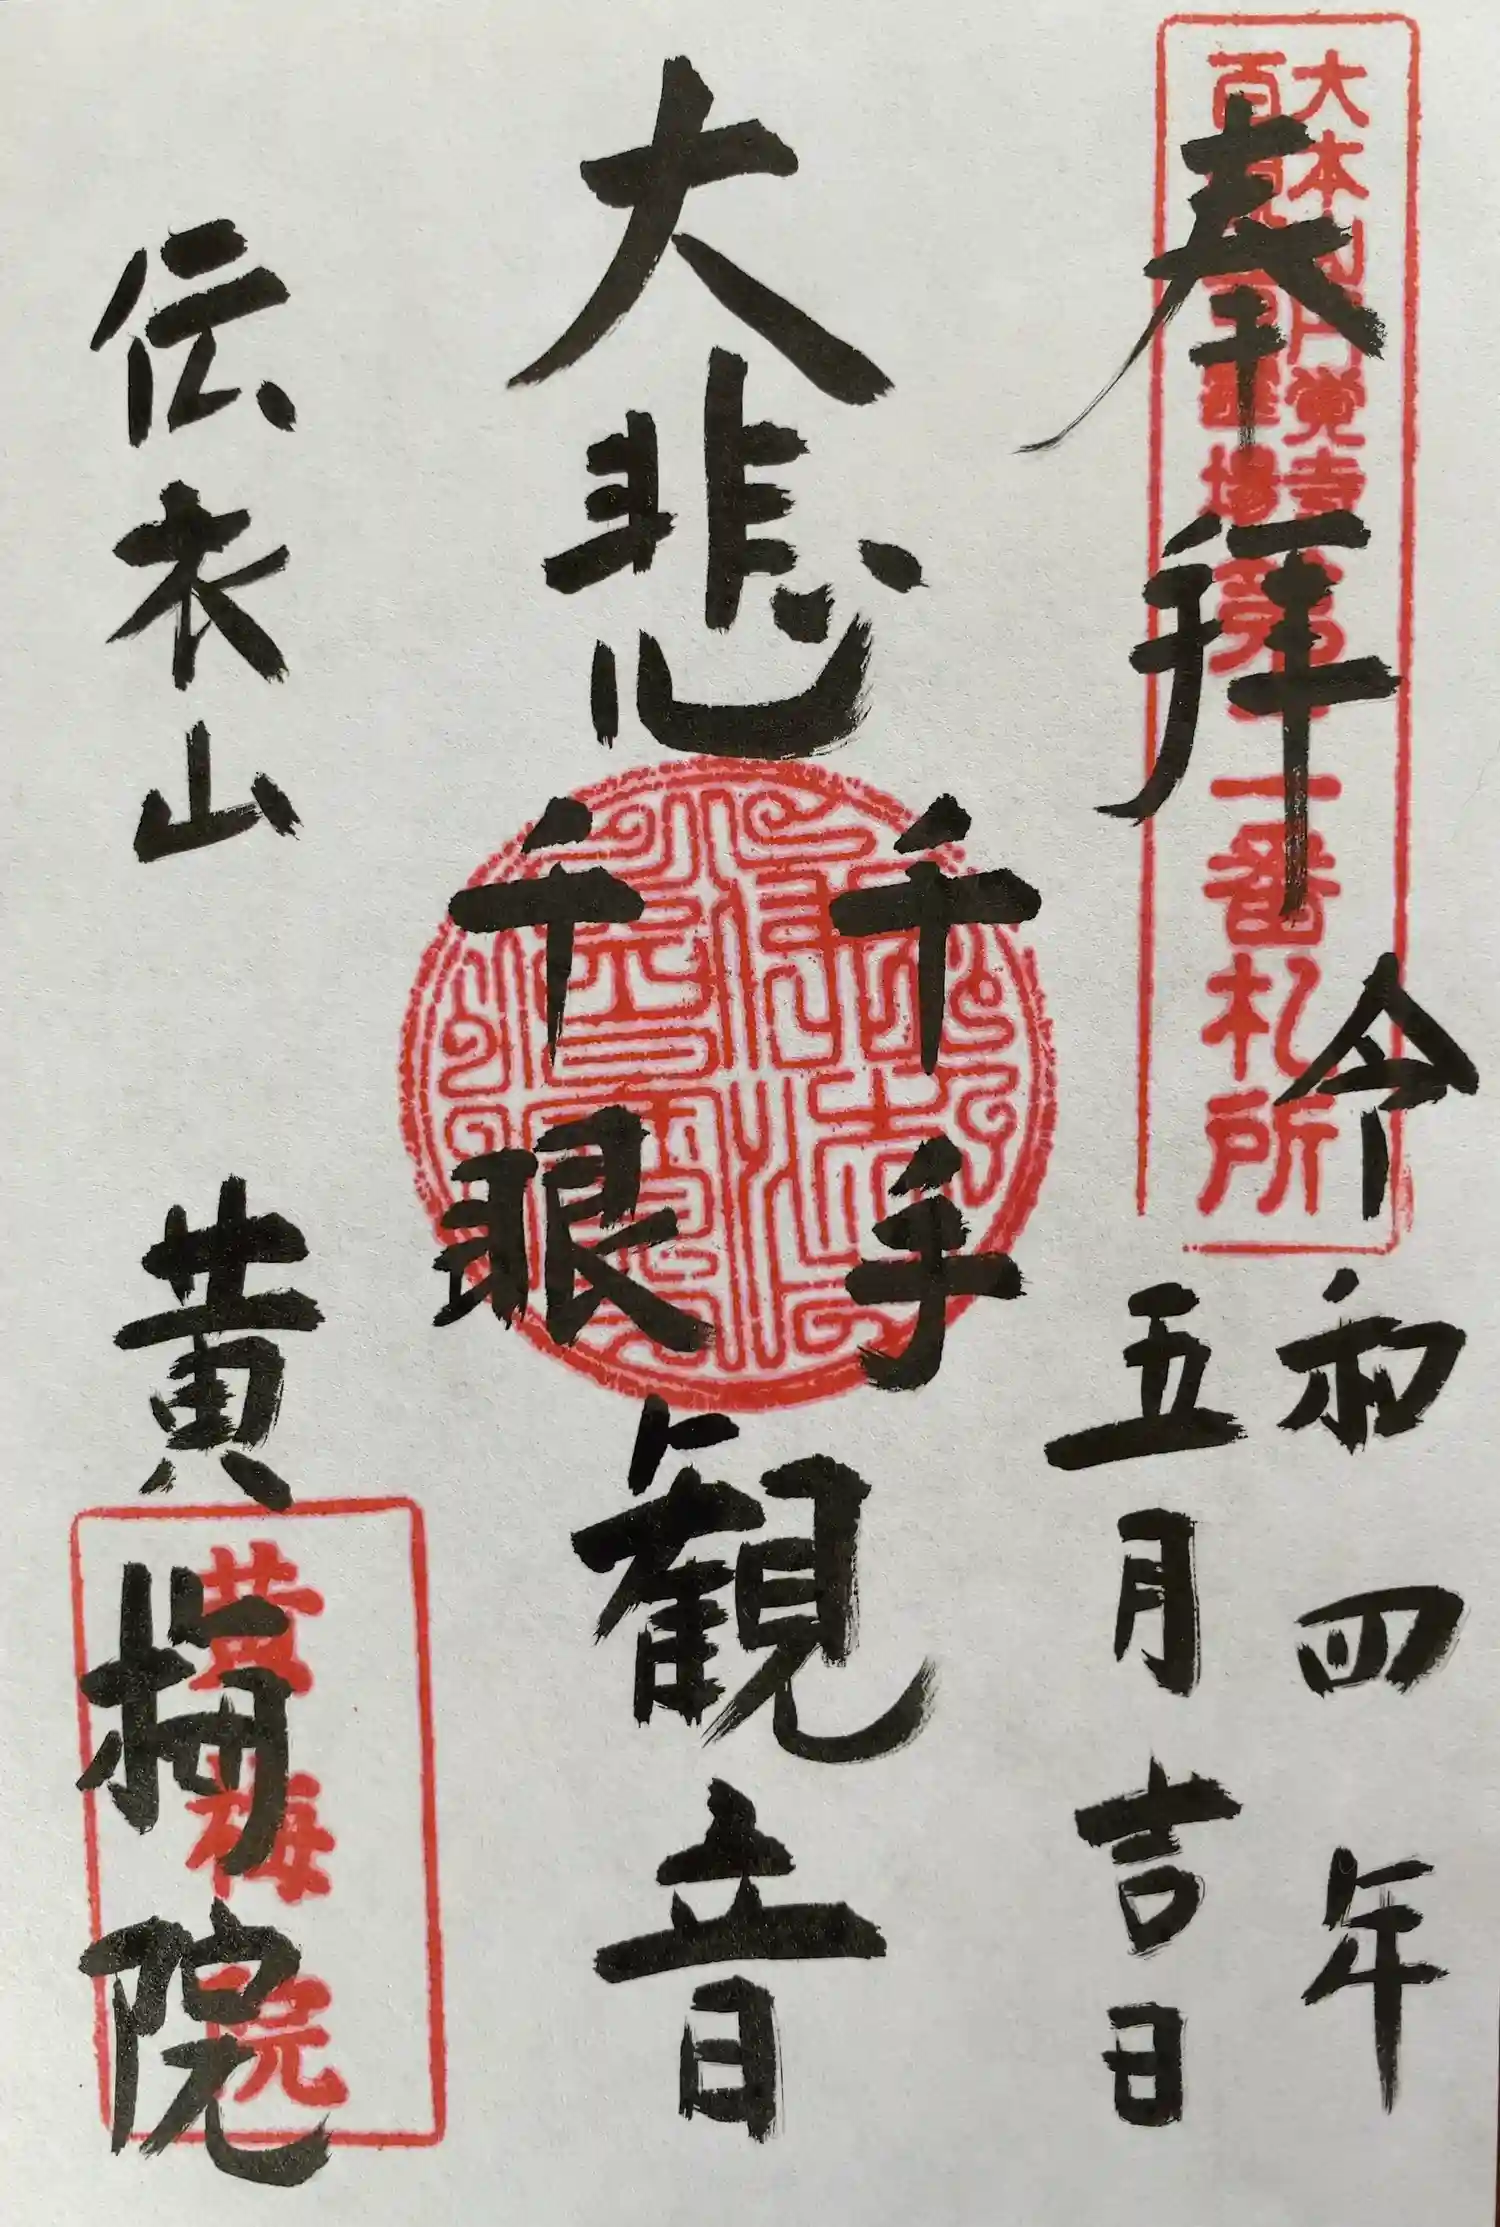 大本山円覚寺
百観音霊場第一番札所
奉拝
令和四年
五月吉日
大悲
千手
千眼
観音
伝衣山
黄梅院
黄梅院